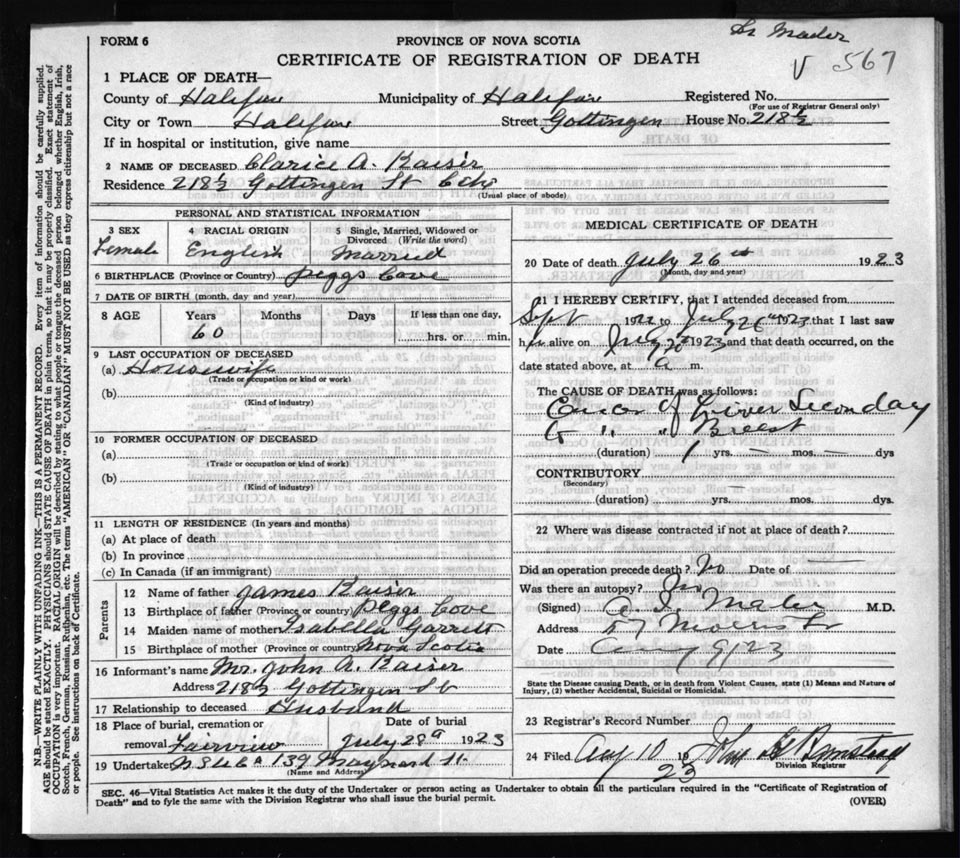 Dr Mader
FORM 6
PROVINCE OF NOVA SCOTIA
V 567
CERTIFICATE OF REGISTRATION OF DEATH
1 PLACE OF DEATH—
County of Halifax Municipality of Halifax Registered No.
(For use of Registrar General only)
City or Town Halifax Street Gottingen House No. 218½
If in hospital or institution, give name
2 NAME OF DECEASED Clarice A. Baiser
Residence 218½ Gottingen St City
(Usual place of abode)
PERSONAL AND STATISTICAL INFORMATION
3 SEX 4 RACIAL ORIGIN 5 Single, Married, Widowed or Divorced (Write the word)
Female English Married
6 BIRTHPLACE (Province or Country) Peggs Cove
7 DATE OF BIRTH (month, day and year)
8 AGE Years Months Days If less than one day,
60 hrs. or min.
9 LAST OCCUPATION OF DECEASED
(a) Housewife
(Trade or occupation or kind of work)
(b)
(Kind of industry)
10 FORMER OCCUPATION OF DECEASED
(a)
(Trade or occupation or kind of work)
(b)
(Kind of industry)
11 LENGTH OF RESIDENCE (In years and months)
(a) At place of death
(b) In province
(c) In Canada (if an immigrant)
Parents
12 Name of father James Baiser
13 Birthplace of father (Province or country) Peggs Cove
14 Maiden name of mother Isabella Garrett
15 Birthplace of mother (Province or country) Nova Scotia
16 Informant's name Mr. John A. Baiser
Address 218½ Gottingen St
17 Relationship to deceased Husband
18 Place of burial, cremation or Date of burial
removal Fairview July 28 1923
19 Undertaker 139 Maynard St.
(Name and Address)
MEDICAL CERTIFICATE OF DEATH
20 Date of death July 26th 1923
(Month, day and year)
21 I HEREBY CERTIFY, that I attended deceased from
Sept 1922 to July 26th 1923 that I last saw
h alive on July 1923 and that death occurred, on the
date stated above, at a m.
The CAUSE OF DEATH was as follows:
Cancer of Liver Seconday
to " " Breast
(duration) 1 yrs. — mos. — dys
CONTRIBUTORY —
(Secondary)
(duration) yrs. mos. dys.
22 Where was disease contracted if not at place of death?
Did an operation precede death? No Date of —
Was there an autopsy? No
(Signed) Mader M.D.
Address 57 Morris St
Date Aug 9/23
State the Disease causing Death, or in death from Violent Causes, state (1) Means and Nature of
Injury, (2) whether Accidental, Suicidal or Homicidal.
23 Registrar's Record Number
24 Filed Aug 10 1923
Division Registrar
SEC. 46—Vital Statistics Act makes it the duty of the Undertaker or person acting as Undertaker to obtain all the particulars required in the "Certificate of Registration of
Death" and to fyle the same with the Division Registrar who shall issue the burial permit.
(OVER)
N.B.—WRITE PLAINLY WITH UNFADING INK—THIS IS A PERMANENT RECORD. Every item of information should be carefully supplied.
AGE should be stated EXACTLY. PHYSICIANS should STATE CAUSE OF DEATH in plain terms, so that it may be properly classified. Exact statement of
OCCUPATION is very important. RACIAL ORIGIN will be described by stating to what people or tongue the deceased person belonged, whether English, Irish,
Scotch, French, German, Russian, Ruthenian, etc. The terms "AMERICAN" OR "CANADIAN" MUST NOT BE USED as they express citizenship but not a race
or people. See instructions on back of Certificate.